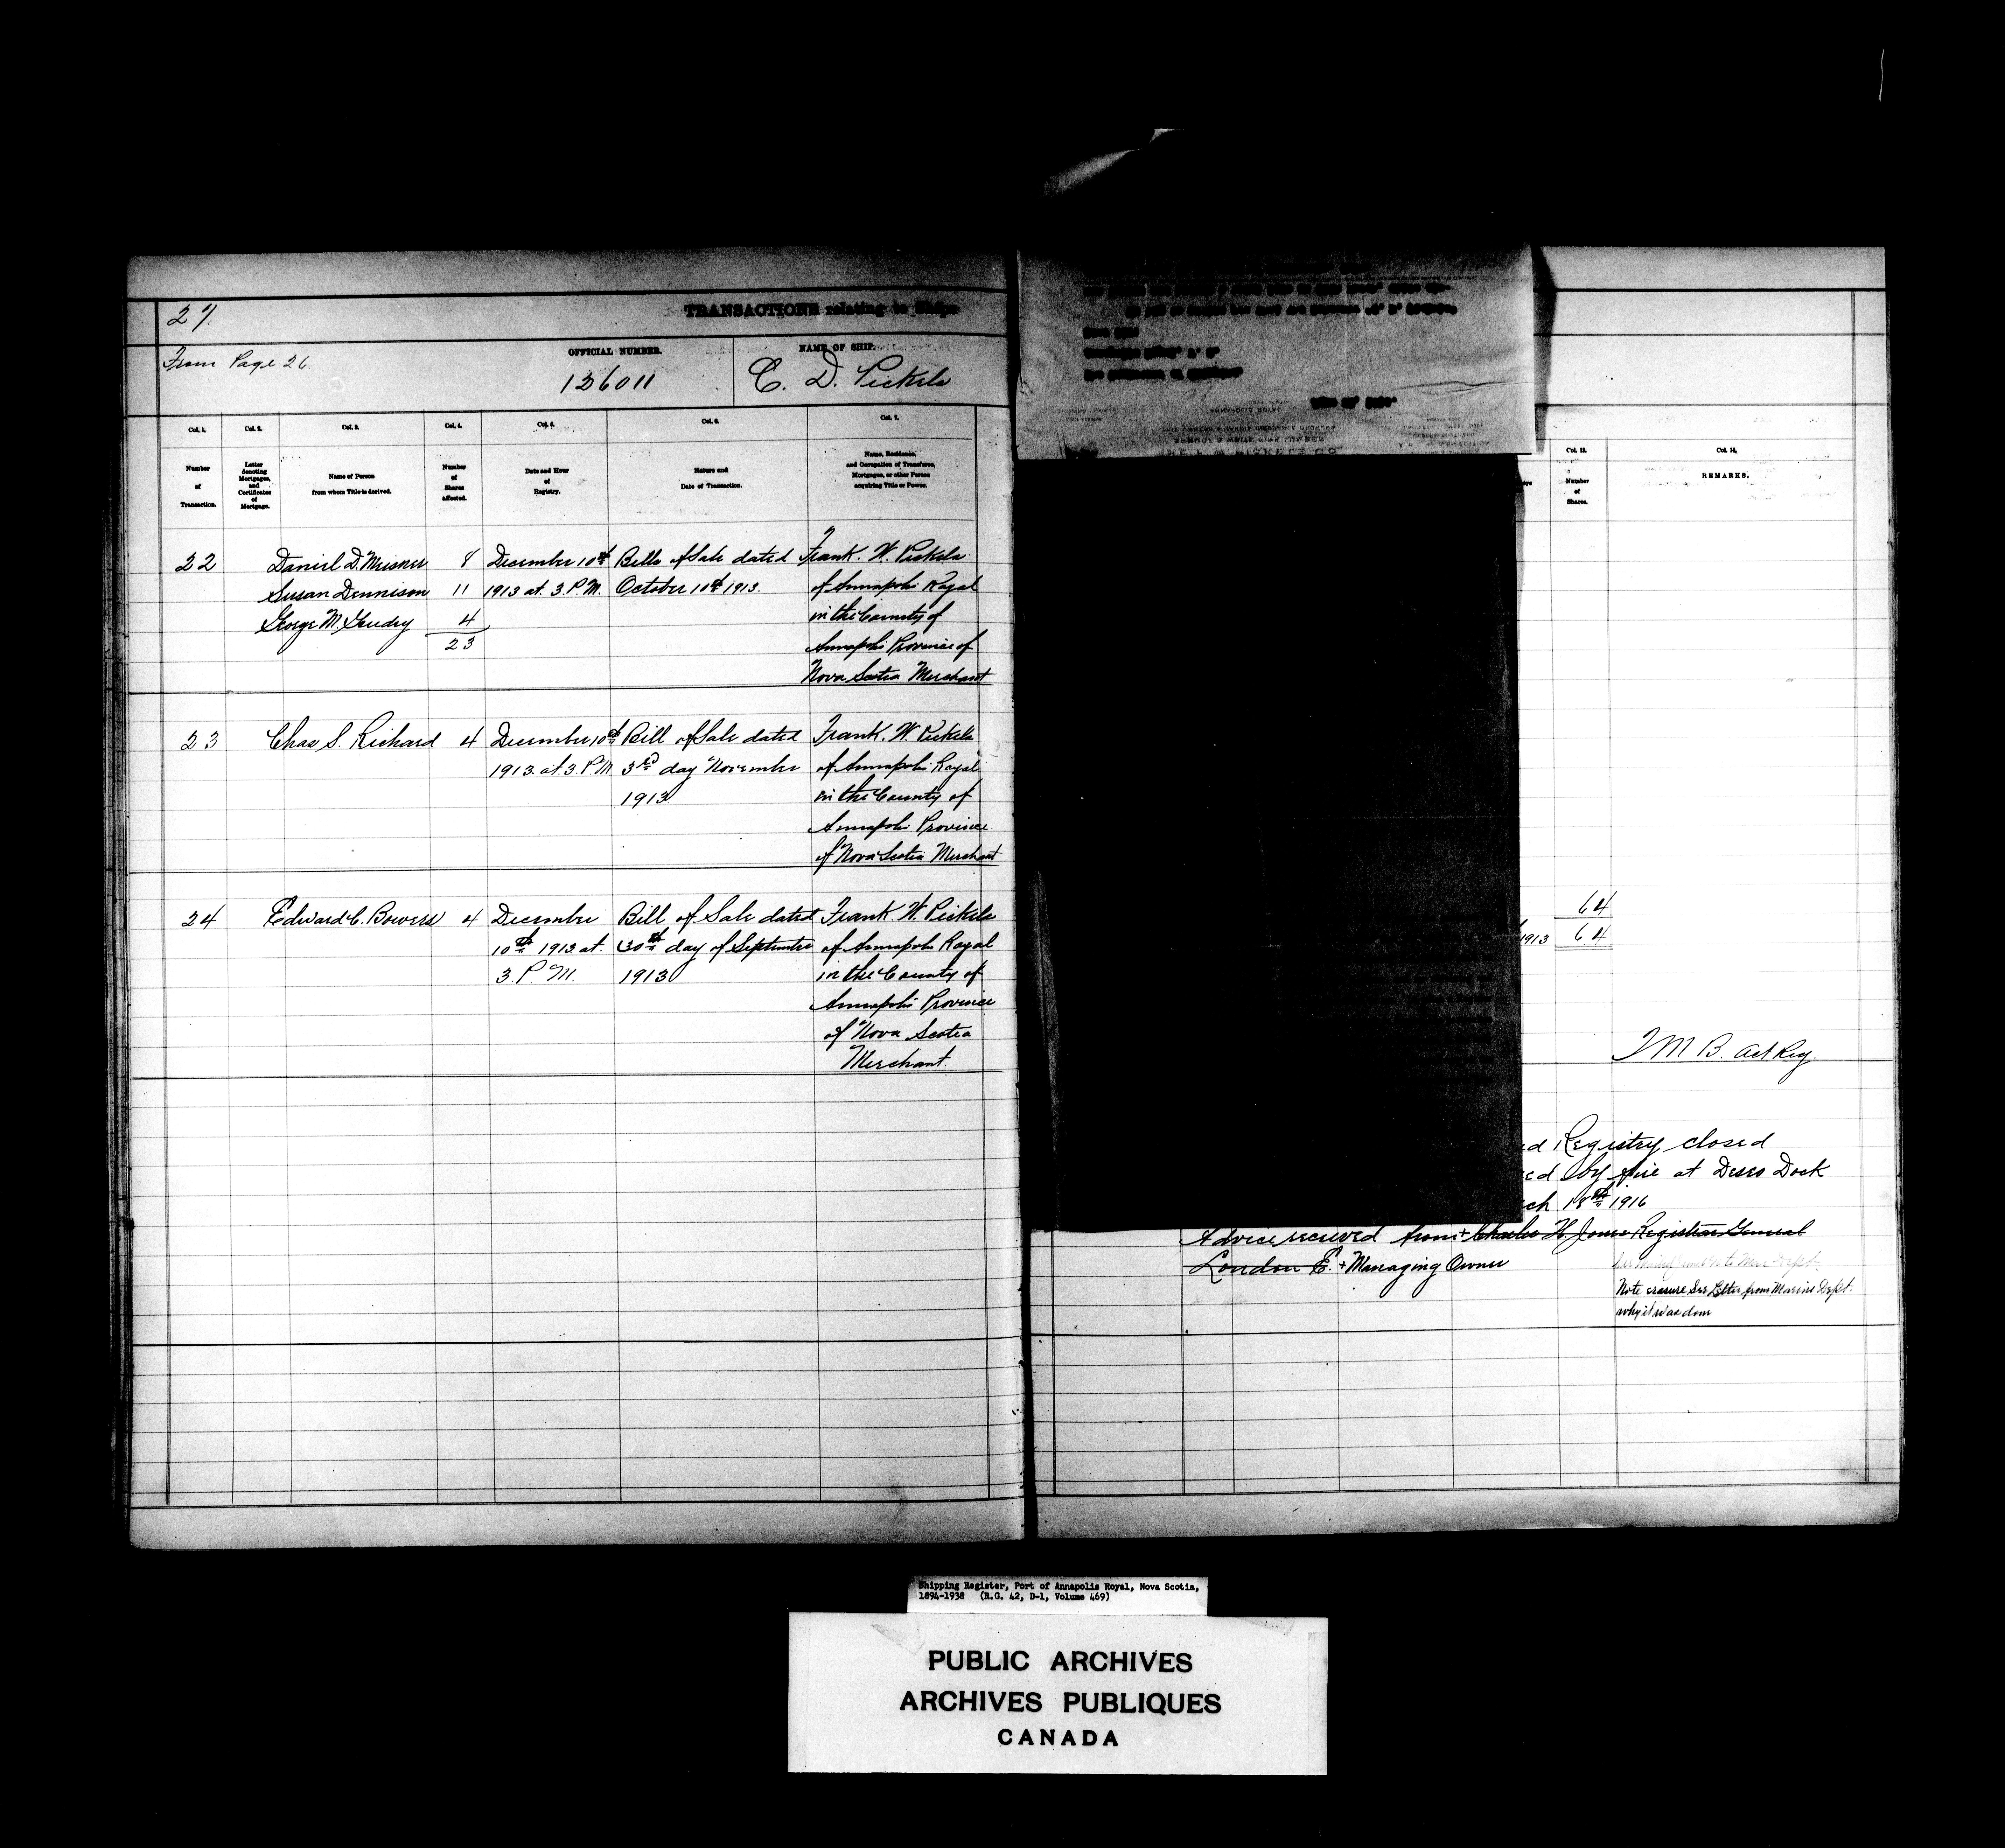 27.
TRANSACTIONS relating to Ships
From Page 26
OFFICIAL NUMBER.
136011
NAME OF SHIP.
C. D. Pickels
Col. 1. Col. 2. Col. 3. Col. 4. Col. 5. Col. 6. Col. 7.
Number of Transaction.
Letter denoting Mortgages, and Certificates of Mortgage.
Name of Person from whom Title is derived.
Number of Shares affected.
Date and Hour of Registry.
Nature and Date of Transaction.
Name, Residence, and Occupation of Transferee, Mortgagee, or other Person acquiring Title or Power.
22 Daniel D. Meisner 8 December 10th Bills of Sale dated Frank. W. Pickels
Susan Dennison 11 1913 at 3. P.M. October 10th 1913. of Annapolis Royal
George M. 4 in the County of
23 Annapolis Province of
Nova Scotia Merchant
23 Chas S. Richard 4 December 10th Bill of Sale dated Frank. W. Pickels
1913. at 3. P.M 3rd day November of Annapolis Royal
1913 in the County of
Annapolis Province
of Nova Scotia Merchant
24 Edward C. Bowers 4 December Bill of Sale dated Frank. W. Pickels
10th 1913 at 30th day of September of Annapolis Royal
3. P.M. 1913 in the County of
Annapolis Province
of Nova Scotia
Merchant.
Col. 13. Col. 14.
Number of Shares.
REMARKS.
64
1913 64
Act Reg.
ed Registry closed
ed by fire at Dock
ch 18th 1916
Advice received from + Charles H Jones Registrar General
London E. + Managing Owner
Note erasure See Letter from Marine Dept.
why it was done
Shipping Register, Port of Annapolis Royal, Nova Scotia,
1894-1938 (R.G. 42, D-1, Volume 469)
PUBLIC ARCHIVES
ARCHIVES PUBLIQUES
CANADA